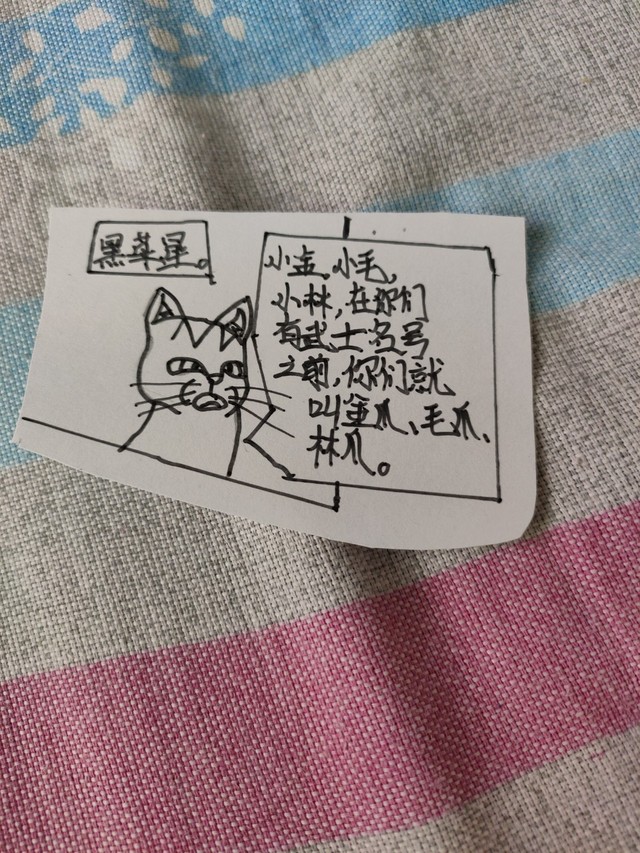 黑莓星。
小金、小毛、
小林,在你们
有武士名号
之前,你们就
叫金爪、毛爪、
林爪。